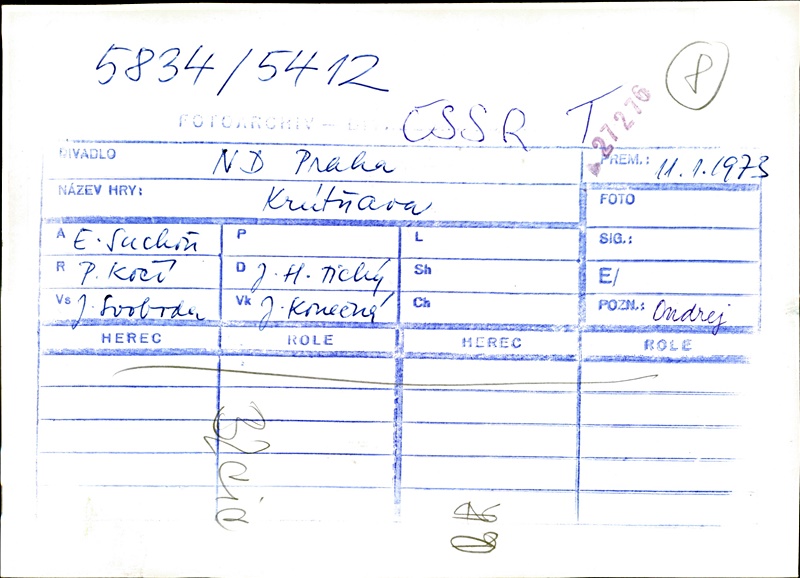 5834/5412
8
FOTOARCHIV – ČSSR T
27276
DIVADLO ND Praha PREM.: 11.1.1973
NÁZEV HRY: Krútňava FOTO
A E. Suchoň P L SIG.:
R P. Kočí D J. H. Tichý Sh E/
Vs J. Svoboda Vk J. Konečná Ch POZN.: Ondrej
HEREC ROLE HEREC ROLE